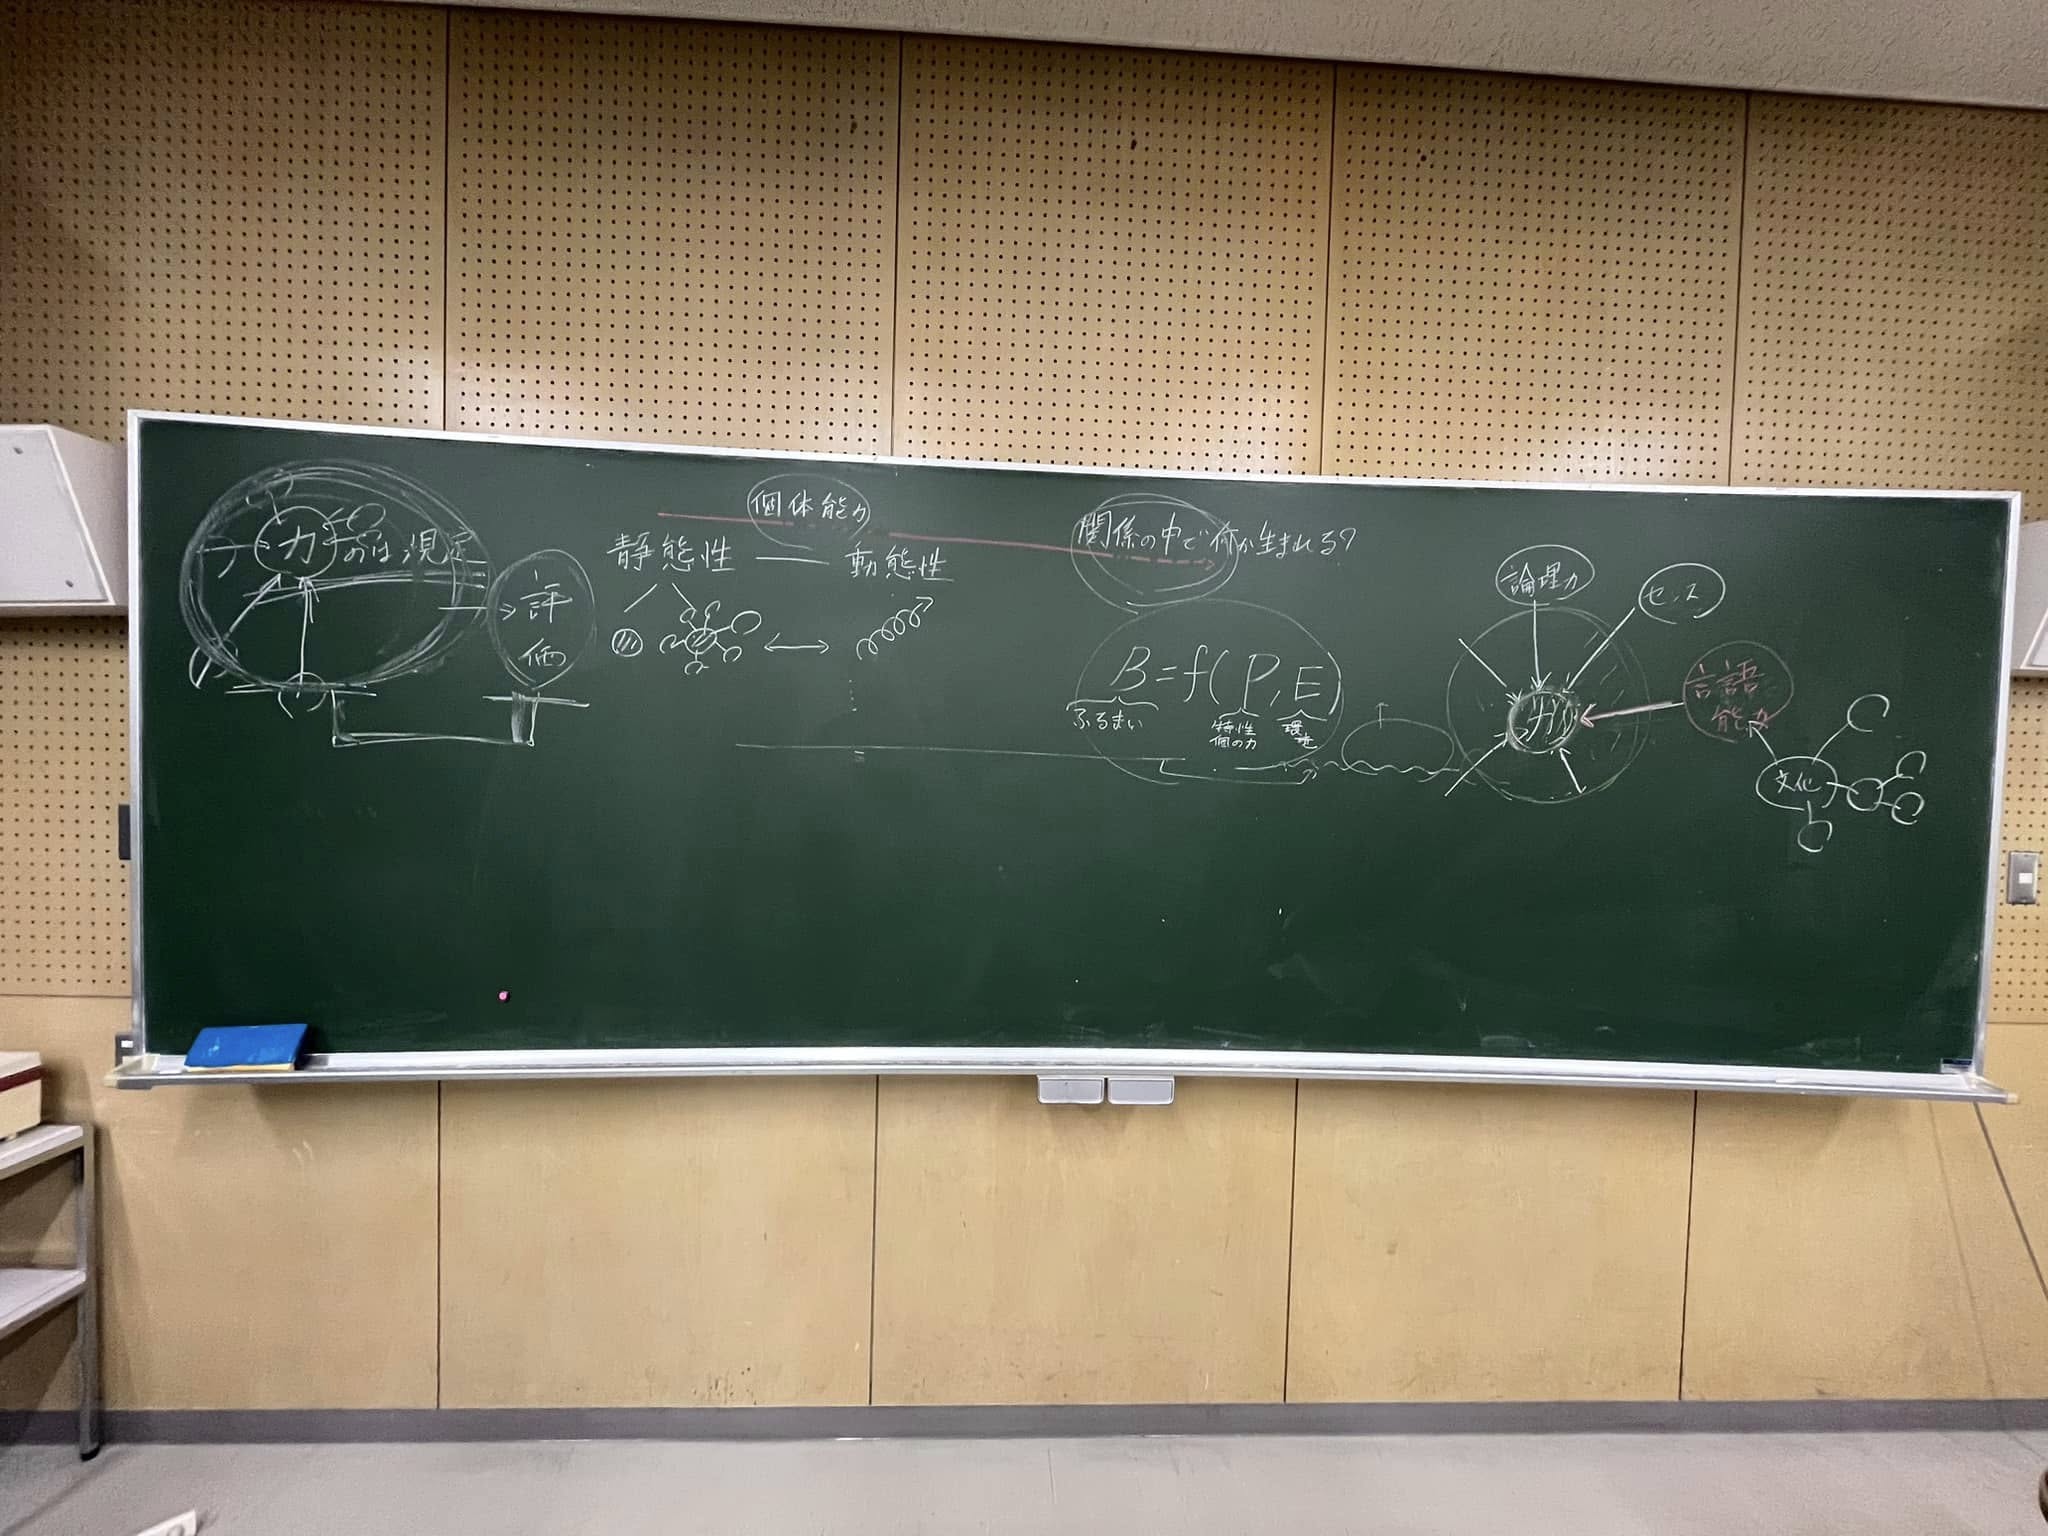 力
のは
評
価
個体能力
静態性 ― 動態性
関係の中で何か生まれる?
B=f(P,E)
ふるまい
特性
個の力
環境
論理力
センス
力
言語
能力
文化